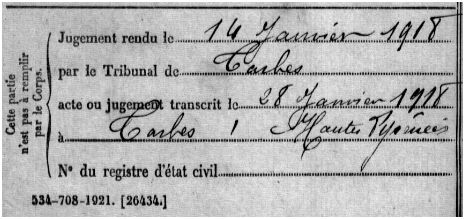 Cette partie
n'est pas à remplir
par le Corps.
Jugement rendu le 14 Janvier 1918
par le Tribunal de Tarbes
acte ou jugement transcrit le 28 Janvier 1918
à Tarbes, Hautes Pyrénées
N° du registre d'état civil
534-708-1921. [26434.]